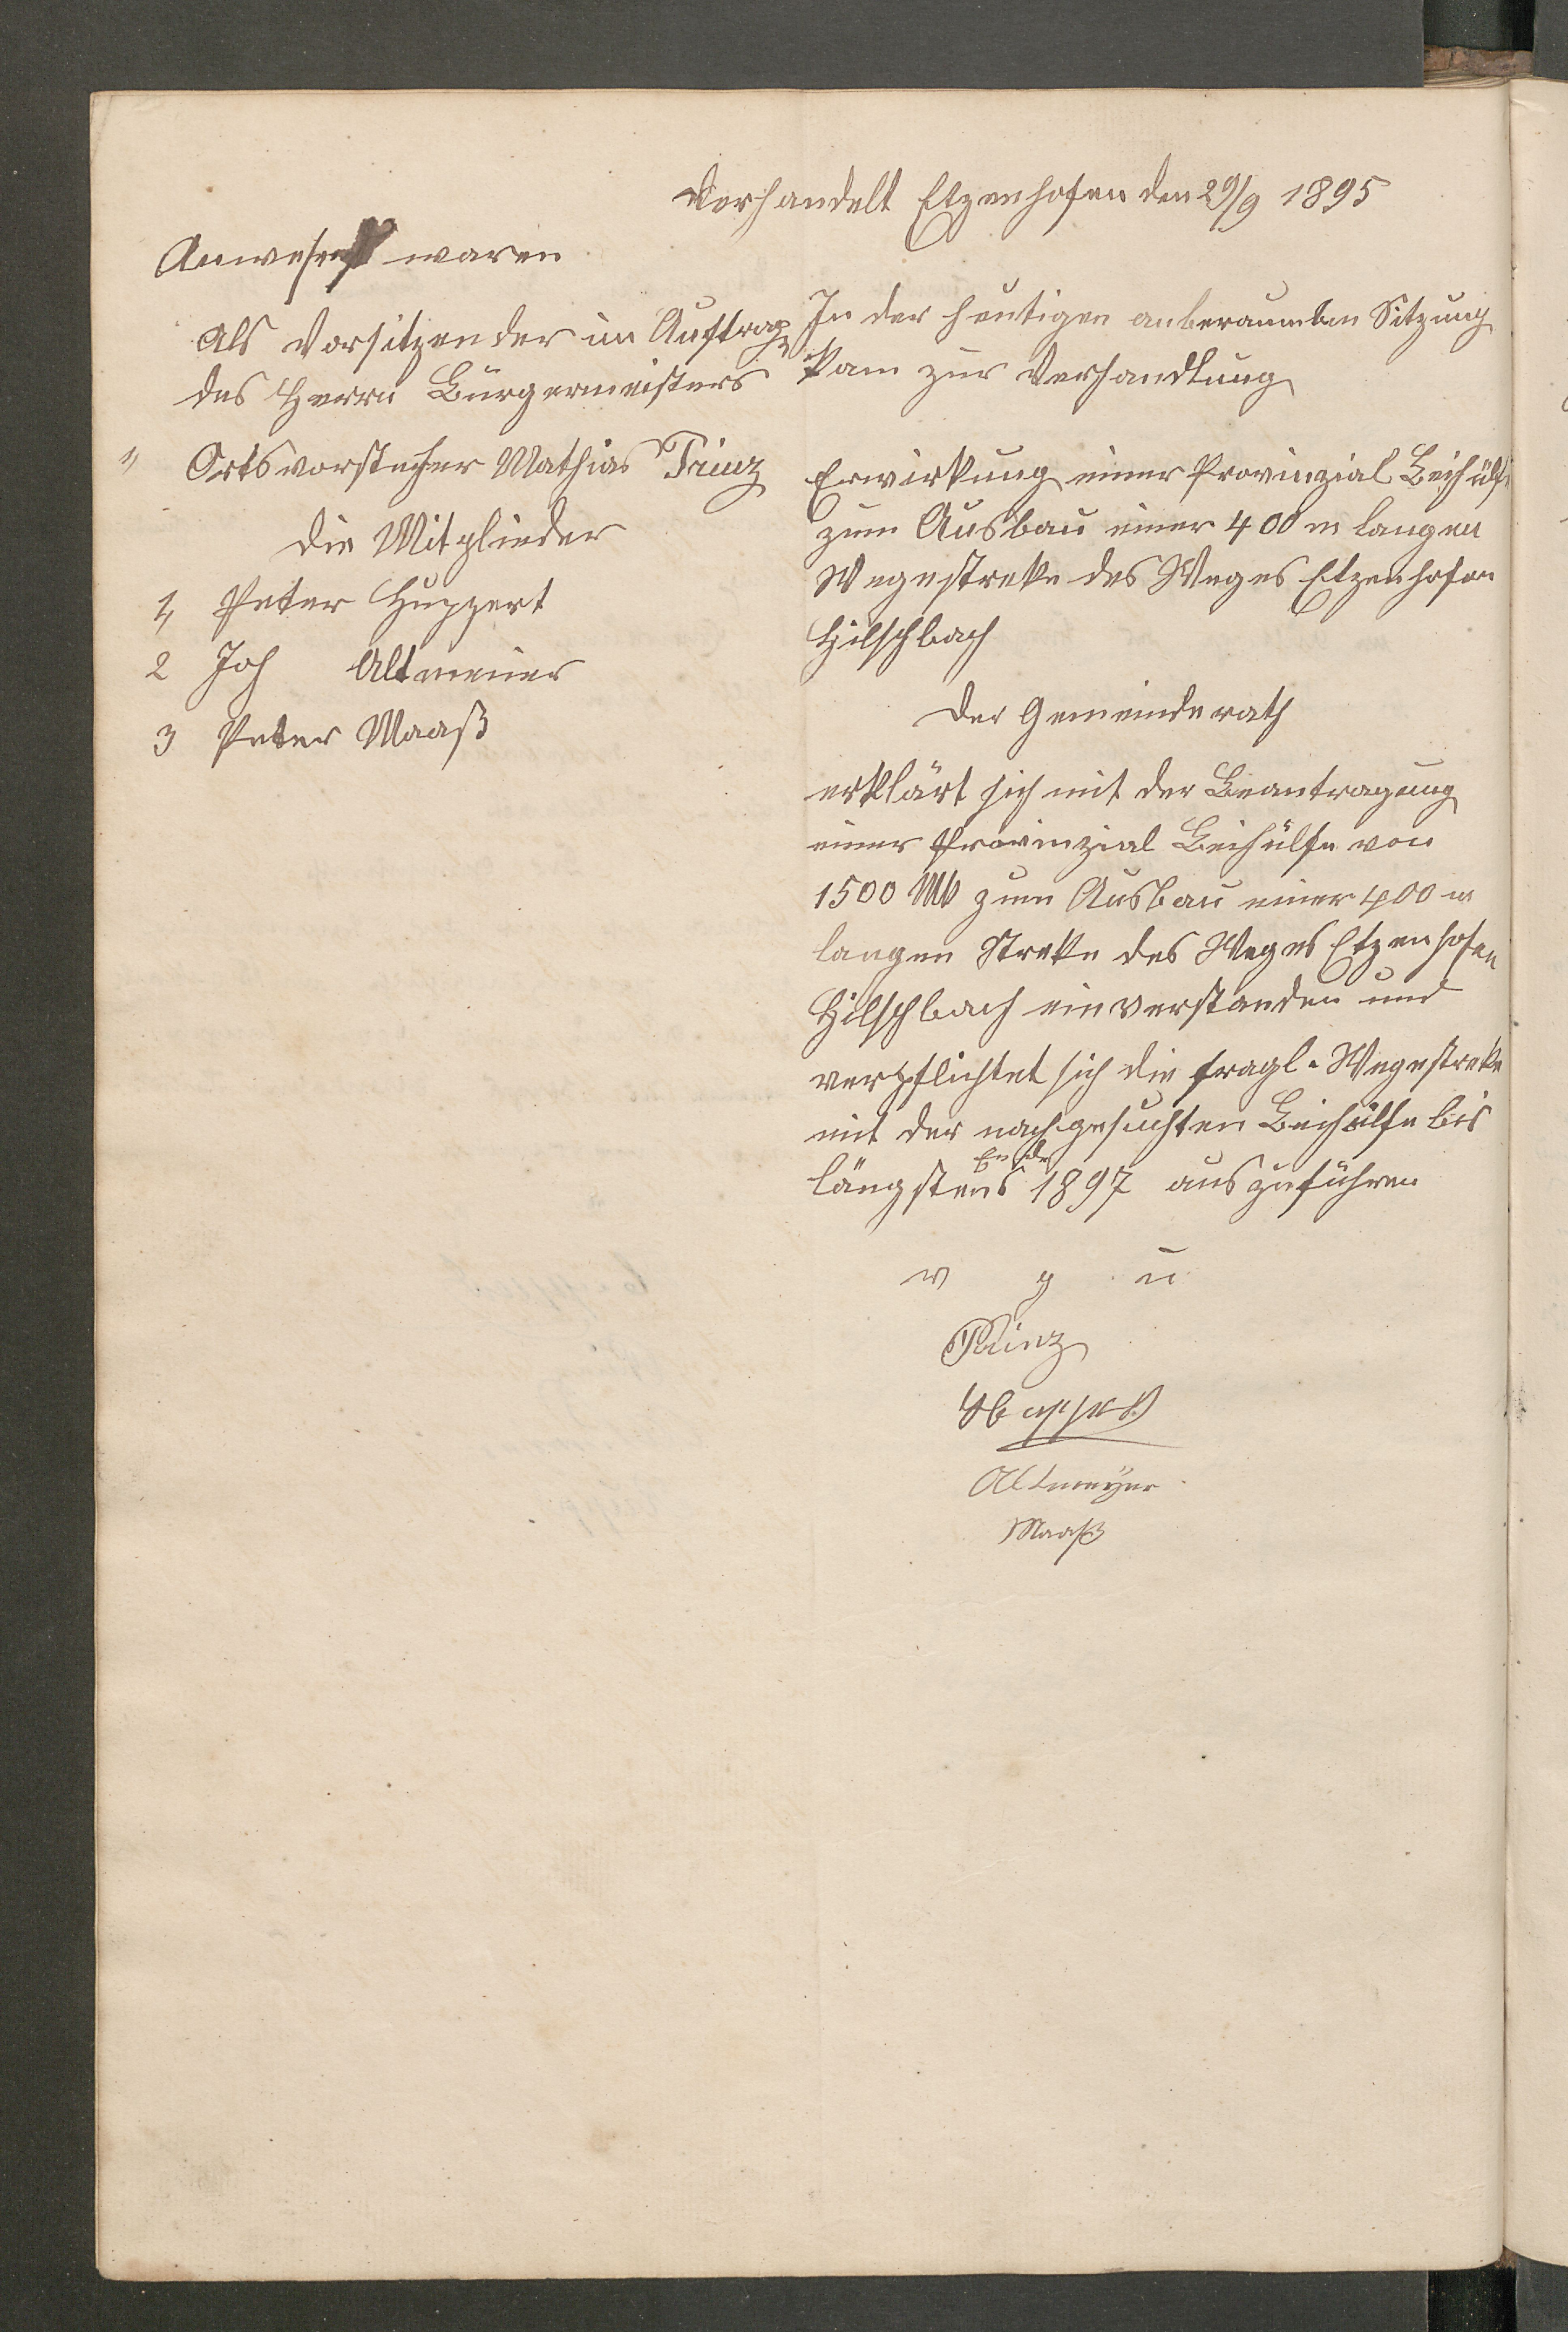 Verhandelt Etzenhofen den 29/9 1895
Anwesend waren
Als Vorsitzender im Auftrage
des Herrn Bürgermeisters
" Ortsvorsteher Mathias Prinz
die Mitglieder
1, Peter Huppert
2 Joh Altmeier
3 Peter Maaß
In der heutigen anberaumten Sitzung
kam zur Verhandlung
Erwirkung einer Provinzial Beihülfe
zum Ausbau einer 400 m langen
Wegestreke des Weges Etzenhofen
Hilschbach
Der Gemeinderath
erklärt sich mit der Beantragung
einer Provinzial Beihülfe von
1500 Mk zum Ausbau einer 400 m
langen Streke des Weges Etzenhofen
Hilschbach einverstanden und
verpflichtet sich die fragl. Wegestreke
mit der nachgesuchten Beihülfe bis
längstens Ende 1897 auszuführen
v g u
Prinz
Huppert
Altmeyer
Maaß